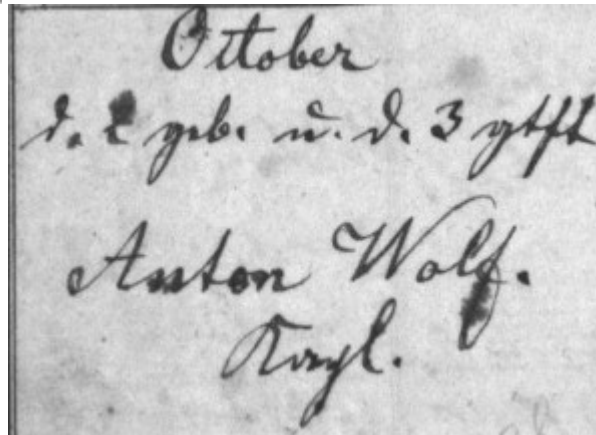 October
d. 2 geb. u. d. 3 gtft
Anton Wolf.
Kapl.